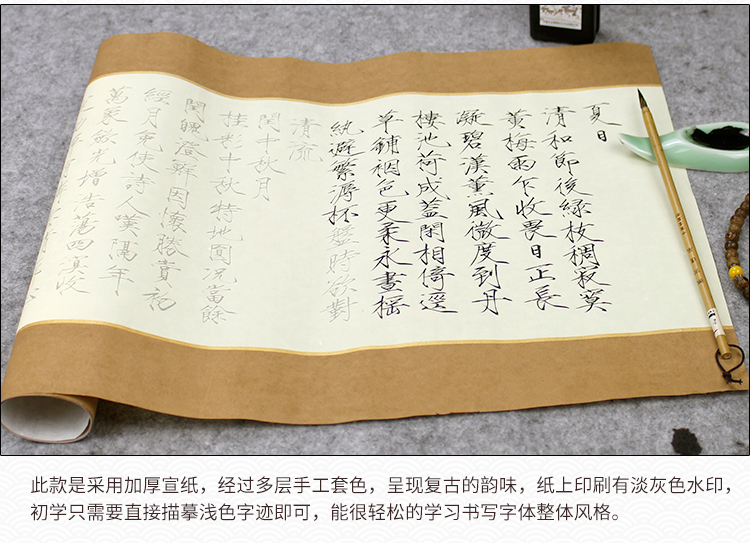 夏日
清和節後綠枝稠寂寞
黃梅雨乍收畏日正長
凝碧漢薰風微度到丹
樓池荷成蓋閑相倚逕
草鋪裀色更柔永晝搖
紈避繁溽杯盤時欲對
清流
閏中秋月
桂彩中秋特地圓況當餘
閏魄澄鮮因懷勝賞初
經月免使詩人嘆隔年
萬象斂光增浩蕩四溟收
此款是采用加厚宣纸，经过多层手工套色，呈现复古的韵味，纸上印刷有淡灰色水印，
初学只需要直接描摹浅色字迹即可，能很轻松的学习书写字体整体风格。